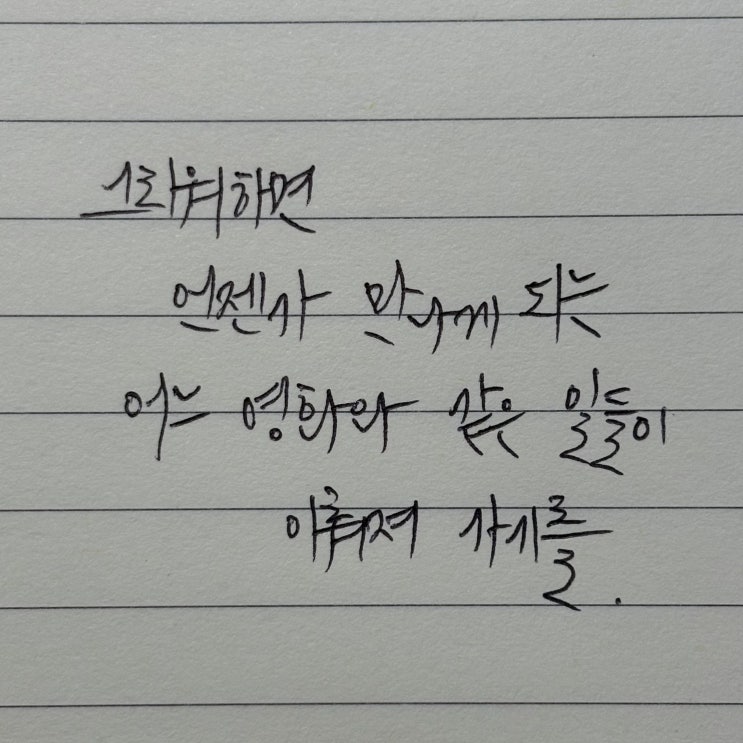 그리워하면
언젠가 만나게 되는
어느 영화와 같은 일들이
이뤄져 가기를.